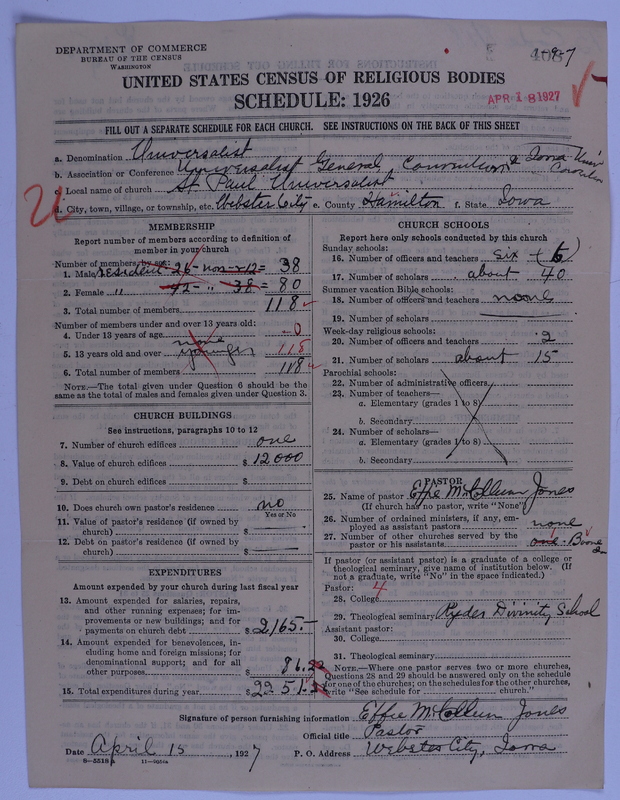 DEPARTMENT OF COMMERCE
BUREAU OF THE CENSUS
WASHINGTON
UNITED STATES CENSUS OF RELIGIOUS BODIES
SCHEDULE: 1926
APR 18 1927
FILL OUT A SEPARATE SCHEDULE FOR EACH CHURCH. SEE INSTRUCTIONS ON THE BACK OF THIS SHEET
a. Denomination Universalist
b. Association or Conference Universalist General Convention & Iowa Univ. Convention
c. Local name of church St. Paul Universalist
d. City, town, village, or township, etc. Webster City e. County Hamilton f. State Iowa
MEMBERSHIP
Report number of members according to definition of
member in your church
Number of members, by sex:
1. Male resident - 26 - non - 12 = 38
2. Female " 42 - " 38 = 80
3. Total number of members 118
Number of members under and over 13 years old:
4. Under 13 years of age none 0
5. 13 years old and over 118
6. Total number of members 118
NOTE.—The total given under Question 6 should be the
same as the total of males and females given under Question 3.
CHURCH BUILDINGS
See instructions, paragraphs 10 to 12
7. Number of church edifices one
8. Value of church edifices $ 12000
9. Debt on church edifices $
10. Does church own pastor's residence no
Yes or No
11. Value of pastor's residence (if owned by
church) $
12. Debt on pastor's residence (if owned by
church) $
EXPENDITURES
Amount expended by your church during last fiscal year
13. Amount expended for salaries, repairs,
and other running expenses; for im-
provements or new buildings; and for
payments on church debt $ 2165.-
14. Amount expended for benevolences, in-
cluding home and foreign missions; for
denominational support; and for all
other purposes $ 86.22
15. Total expenditures during year $ 2251.
CHURCH SCHOOLS
Report here only schools conducted by this church
Sunday schools:
16. Number of officers and teachers six - (6)
17. Number of scholars about 40
Summer vacation Bible schools:
18. Number of officers and teachers none
19. Number of scholars
Week-day religious schools:
20. Number of officers and teachers 2
21. Number of scholars about 15
Parochial schools:
22. Number of administrative officers
23. Number of teachers—
a. Elementary (grades 1 to 8)
b. Secondary
24. Number of scholars—
a. Elementary (grades 1 to 8)
b. Secondary
PASTOR
25. Name of pastor Effie McCollum Jones
(If church has no pastor, write "None")
26. Number of ordained ministers, if any, em-
ployed as assistant pastors none
27. Number of other churches served by the
pastor or his assistants one - Boone
If pastor (or assistant pastor) is a graduate of a college or
theological seminary, give name of institution below. (If
not a graduate, write "No" in the space indicated.)
Pastor: 4
28. College
29. Theological seminary Ryder Divinity School
Assistant pastor:
30. College
31. Theological seminary
NOTE.—Where one pastor serves two or more churches,
Questions 28 and 29 should be answered only on the schedule
for one of the churches; on the schedules for the other churches,
write "See schedule for church."
Signature of person furnishing information Effie McCollum Jones
Official title Pastor
Date April 15, 1927 P. O. Address Webster City, Iowa
8-5518a 11-9051a